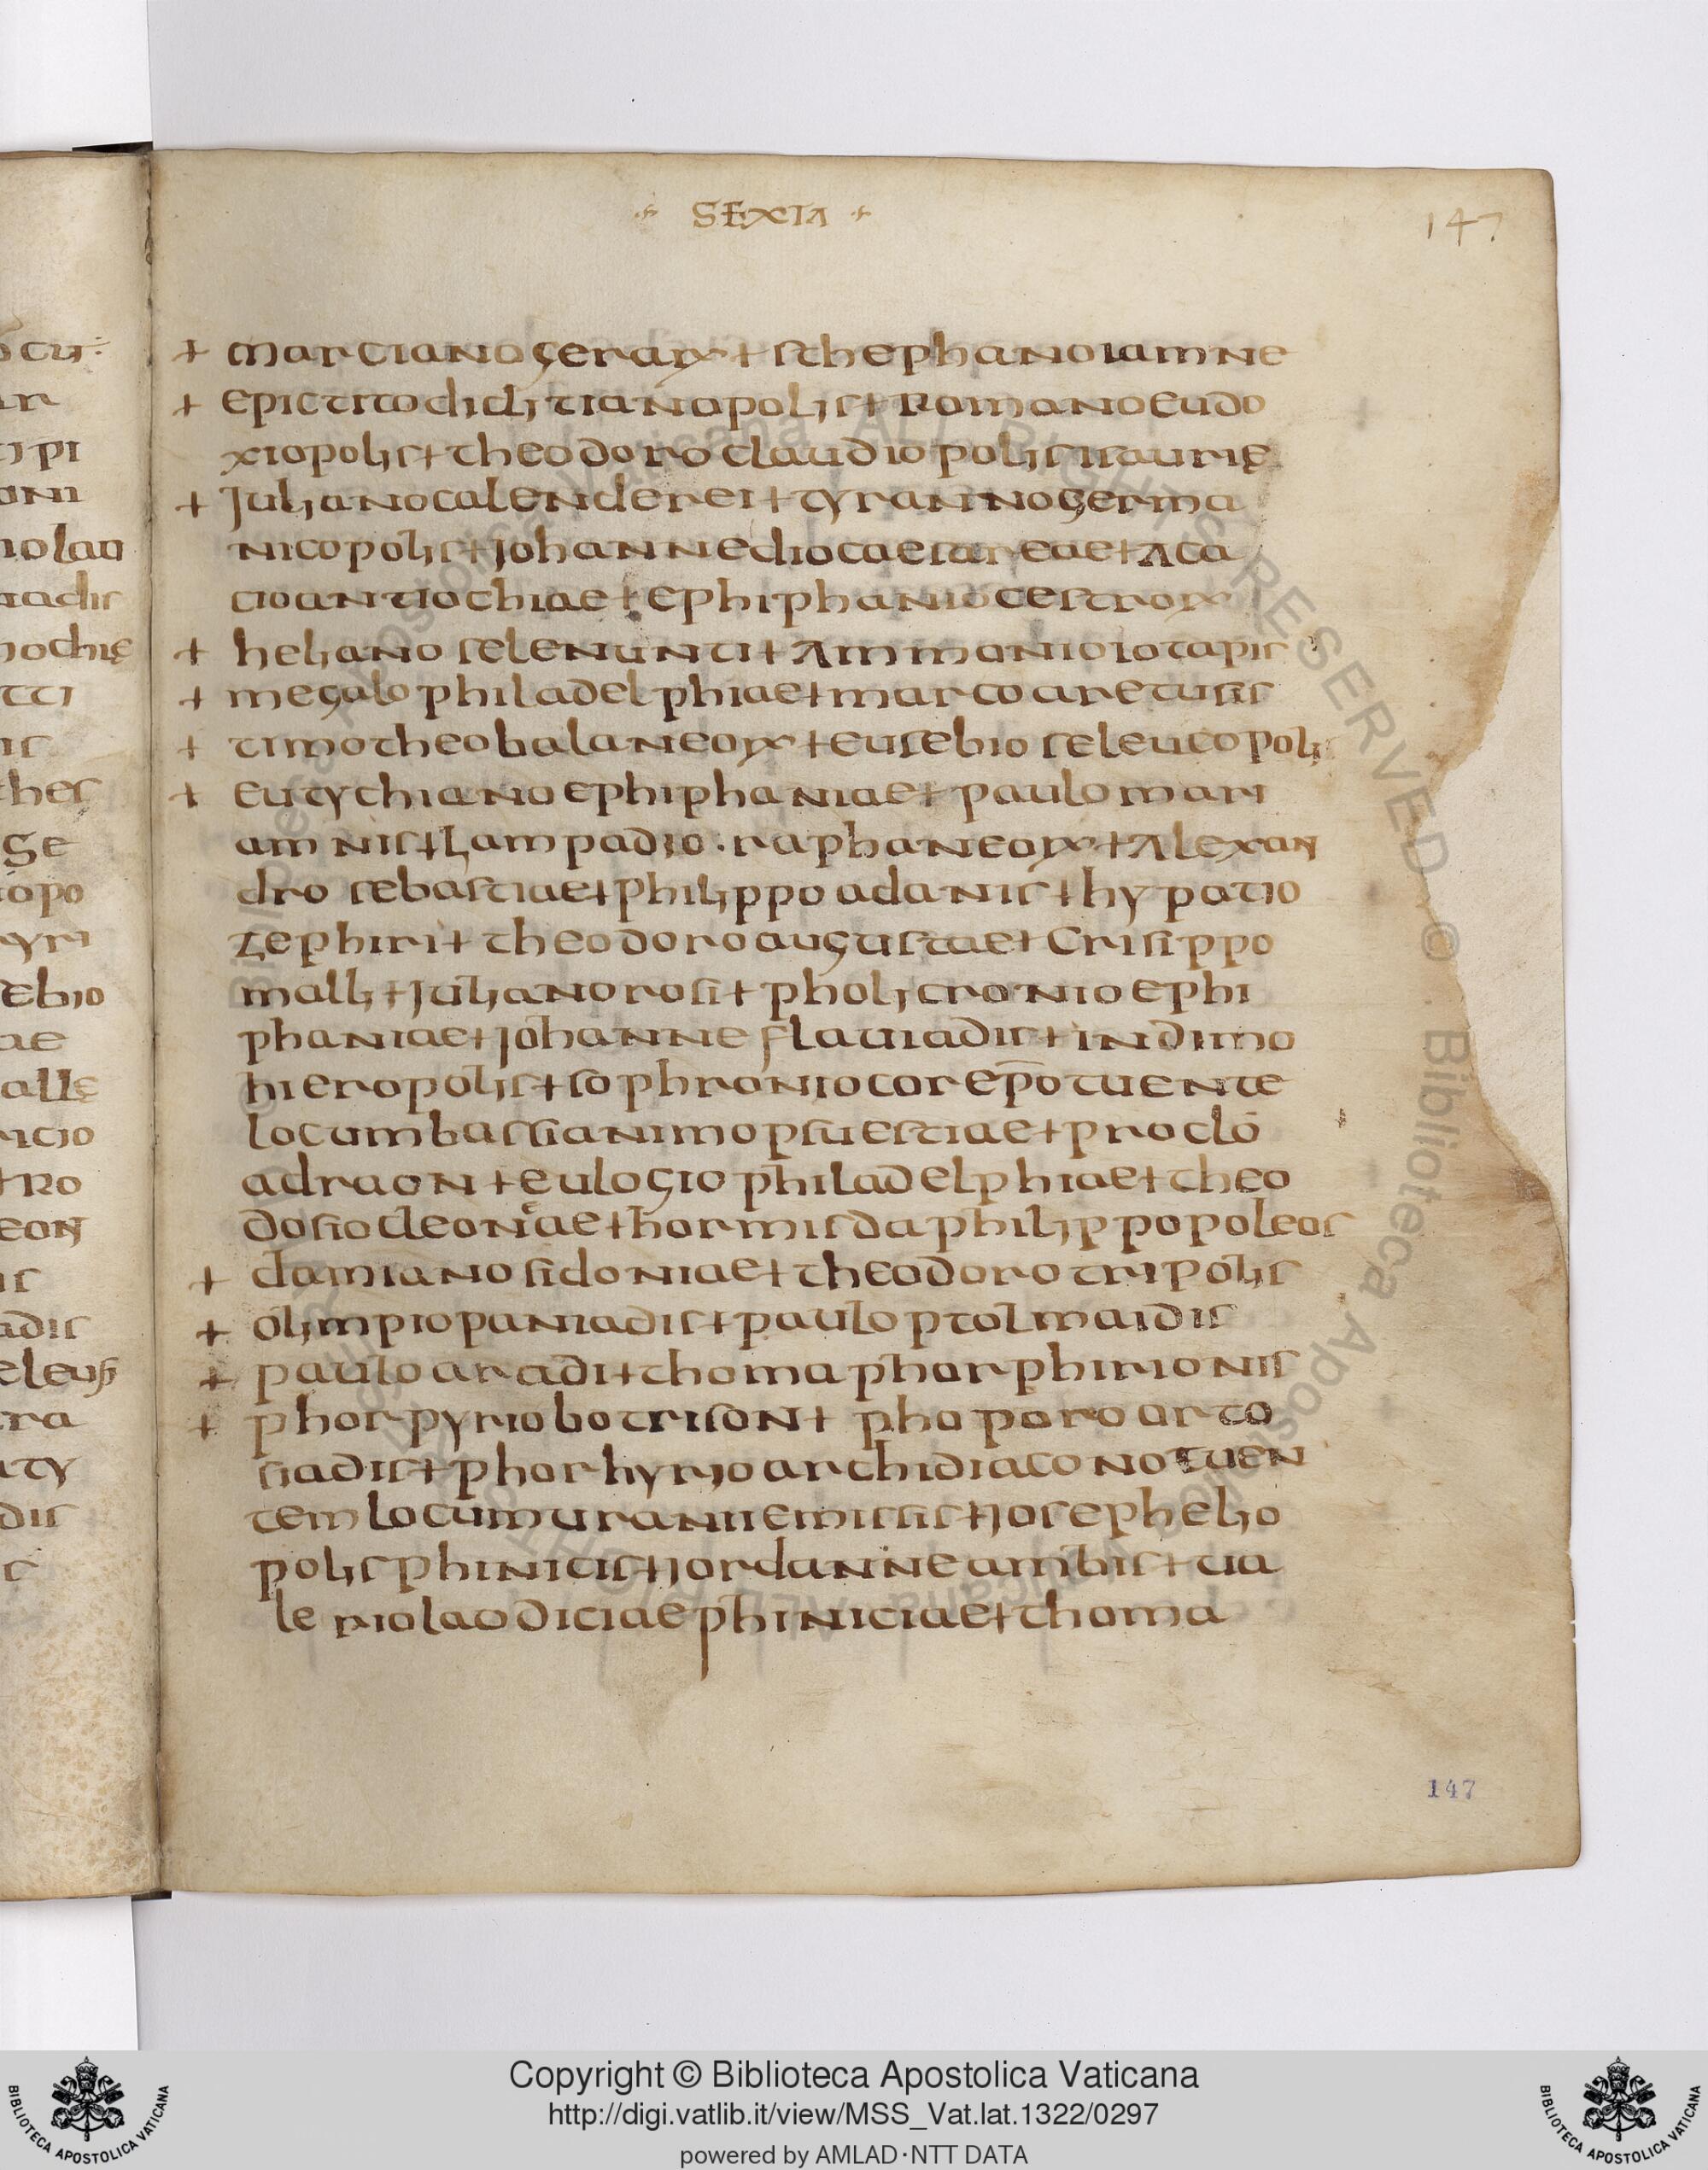 SEXTA
147
+ marciano gerax + sthephano iamne
+ epictito diclitianopolis + Romano eudo
xiopolis + theodoro claudiopolis isaurię
+ Juliano calenderei + tyranno germa
nicopolis + Johanne diocaesareae + Aca
cio antiochiae + ephiphanio cestrox
+ heliano selenunti + Ammonio iotapis
+ megalo philadelphiae + marco aretusis
+ timotheo balaneox + eusebio seleucopolis
+ eutychiano ephiphaniae + paulo mari
amnis + Lampadio · raphaneox + Alexan
dro sebastiae + philippo adanis + hypatio
zephiri + theodoro augustae + Crisippo
malli + Juliano rosi + pholicronio ephi
phaniae + Johanne flauiadis + indimo
hieropolis + sophronio corep̄o tuente
locum bassiani mopsuestiae + proclo
adraon + eulogio philadelphiae + theo
dosio cleoneae + hormisda philippopoleos
+ damiano sidoniae + theodoro tripolis
+ olimpio paniadis + paulo ptolmaidis
+ paulo aradi + thoma phorphirionis
+ phorpyrio botrison + phoporo arto
siadis + phorhyrio archidiacono tuen
tem locum uranii emissis + Joseph elio
polis phinicis + Jordanne ambis + ua
lerio laodiciae phiniciae + thoma
147
ocu
ar
ipi
oni
iolao
iadis
iochię
tti
is
thes
ge
iopo
tyri
ebio
ae
allę
ricio
+ Ro
eon
is
adis
eleus
tra
aty
dis
s
Copyright © Biblioteca Apostolica Vaticana
http://digi.vatlib.it/view/MSS_Vat.lat.1322/0297
powered by AMLAD·NTT DATA
BIBLIOTECA APOSTOLICA VATICANA
BIBLIOTECA APOSTOLICA VATICANA